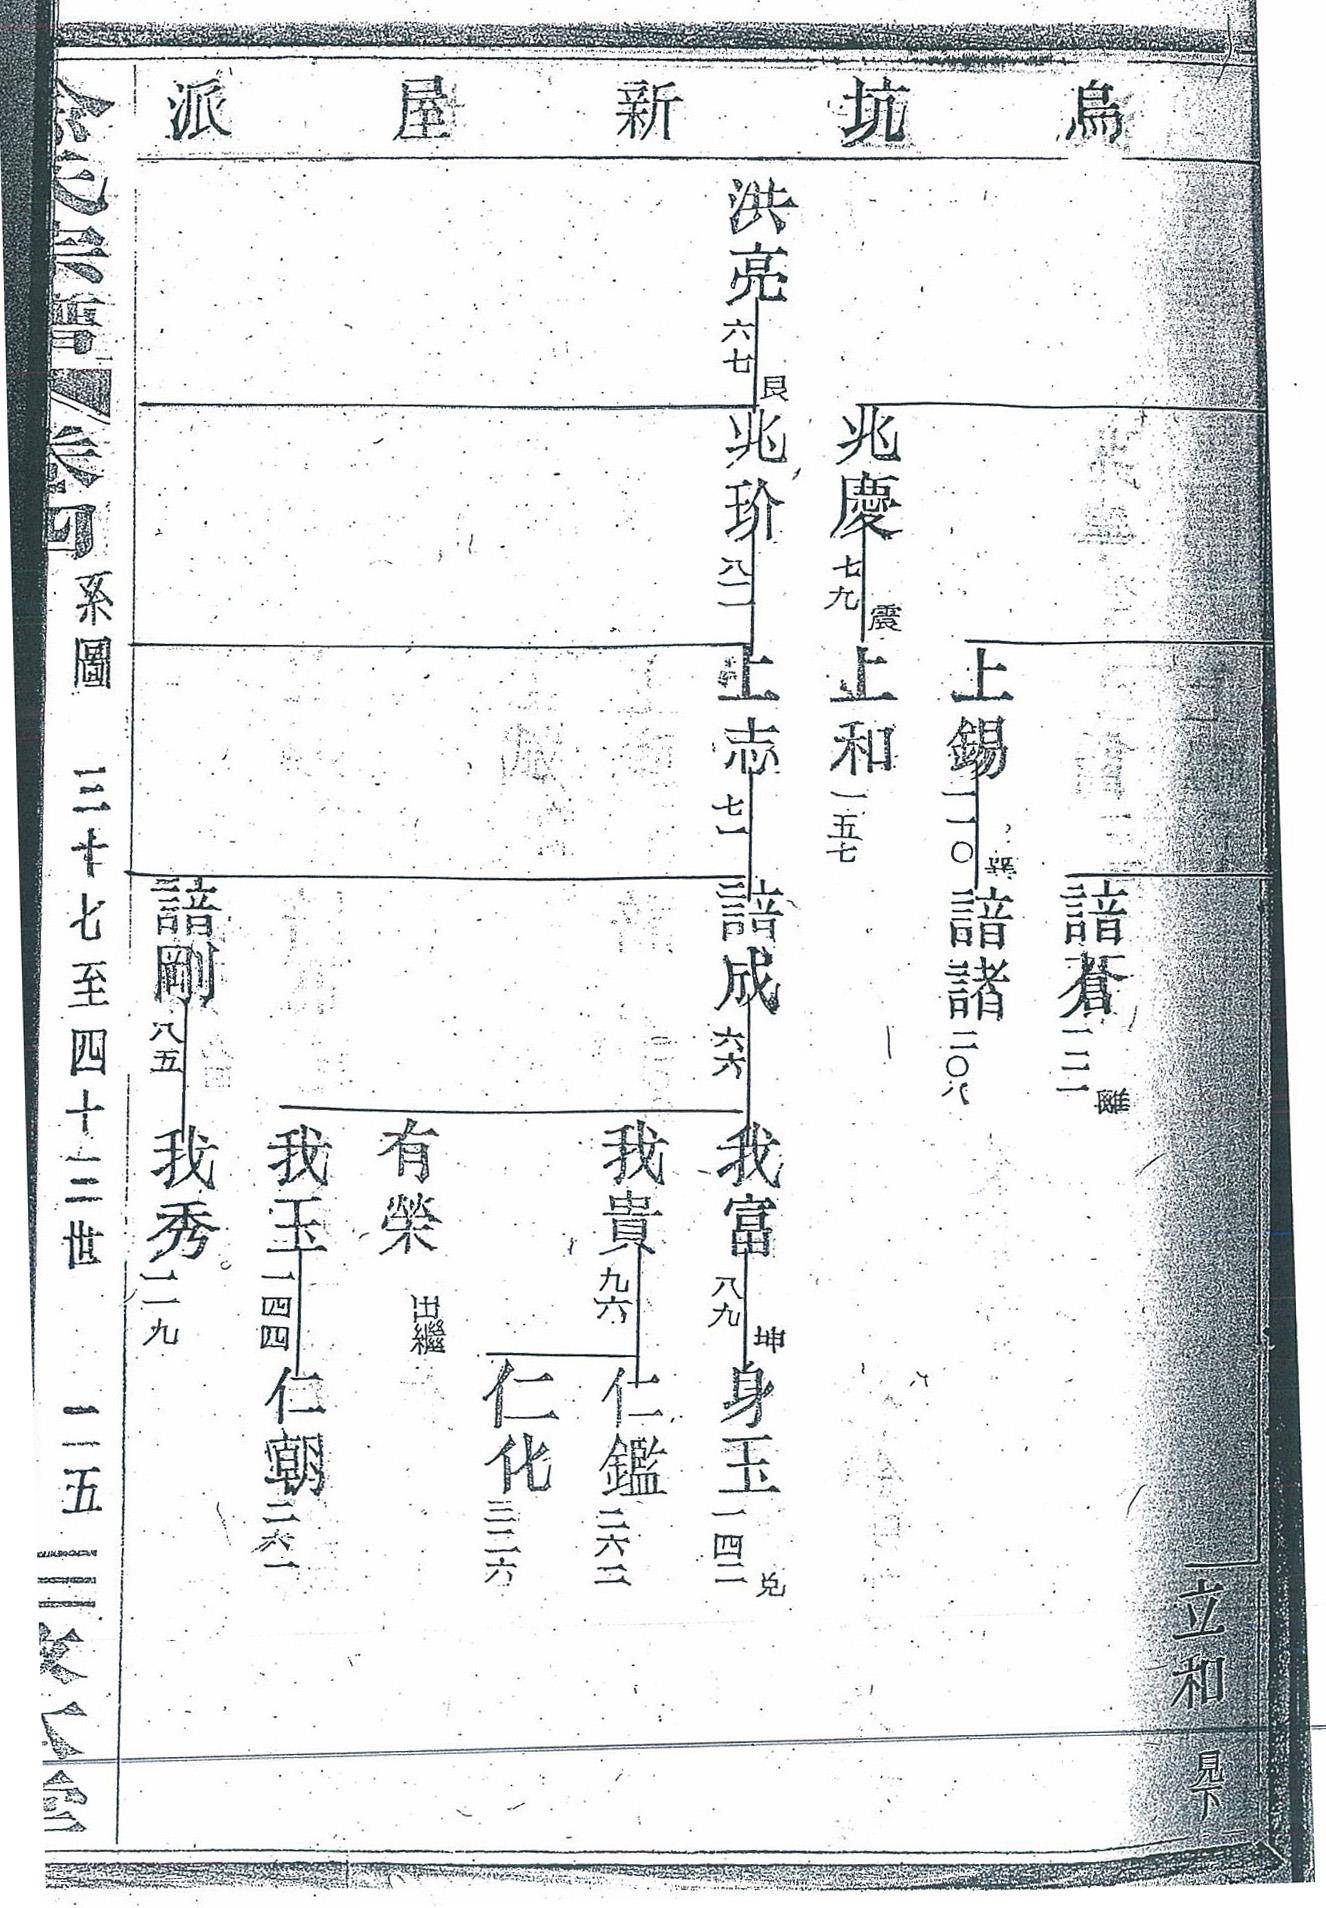 烏坑新屋派
立和 見下
諳蒼 一二一 離
上錫 一一〇 巽
諳諸 二〇八
兆慶 七九 震
上和 一五七
洪亮 六七 艮
兆玠 八一
上志 七一
諳成 六六
我富 八九 坤
身玉 一四二 兌
我貴 九六
仁鑑 二六二
仁化 三二六
有榮 出繼
我玉 一四四
仁朝 二六一
諳剛 八五
我秀 二一九
氏宗譜 卷四 系圖 三十七至四十三世 二五